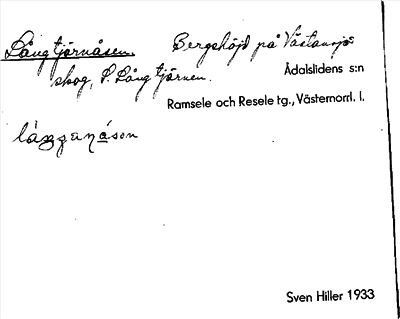 Långtjärnåsen. Bergshöjd på Västansjö
skog, S. Långtjärnen.
Ådalslidens s:n
Ramsele och Resele tg., Västernorrl. l.
Sven Hiller 1933